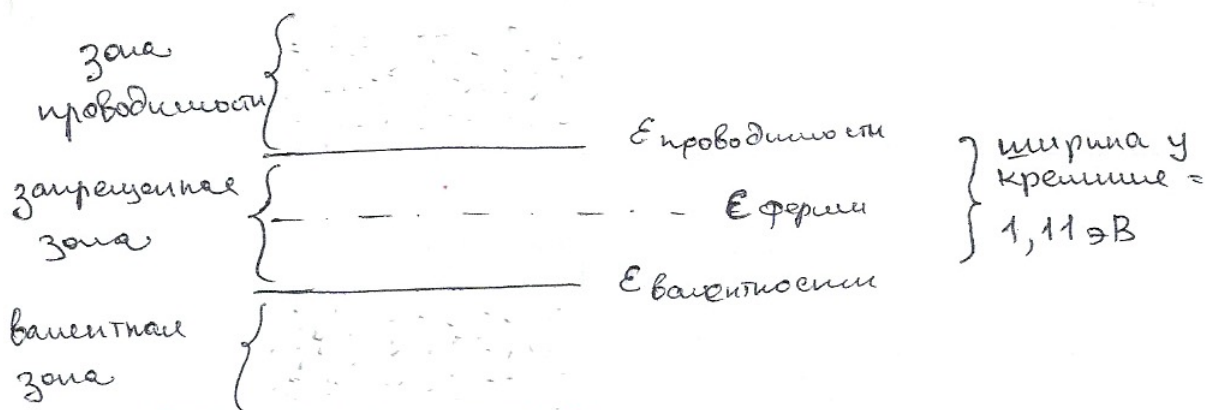 зона
проводимости
запрещенная
зона
валентная
зона
Ɛ проводимости
Ɛ ферми
Ɛ валентности
ширина у
кремние =
1,11 эВ